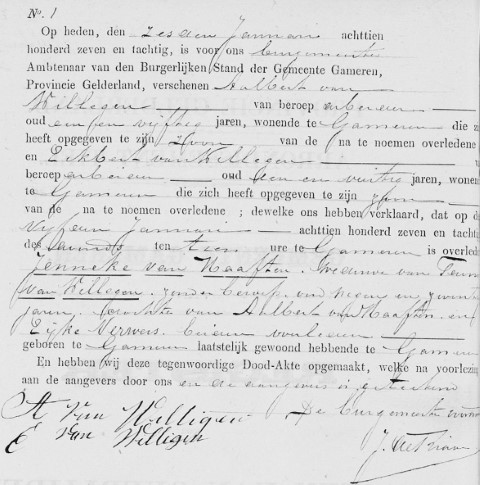 No. 1
Op heden, den zesden Januari achttien
honderd zeven en tachtig, is voor ons burgemeester
Ambtenaar van den Burgerlijken Stand der Gemeente Gameren,
Provincie Gelderland, verschenen Aalbert van
Willegen van beroep arbeider
oud een en vijftig jaren, wonende te Gameren die z
heeft opgegeven te zijn Zoon van de na te noemen overledene
en Eijkbert van Willegen v
beroep arbeider oud een en veertig jaren, wonen
te Gameren die zich heeft opgegeven te zijn zoon
van de na te noemen overledene ; dewelke ons hebben verklaard, dat op d
vijfden Januari achttien honderd zeven en tachtig
des avonds ten tien ure te Gameren is overled
Jenneke van Haaften, Weduwe van Teun
van Willegen, zonder beroep, oud negen en zeventig
jaren, dochter van Aalbert van Haaften en
Eijke Verweis, beiden overleden
geboren te Gameren laatstelijk gewoond hebbende te Gameren
En hebben wij deze tegenwoordige Dood-Akte opgemaakt, welke na voorlezin
aan de aangevers door ons en de aangevers is geteekend
A van Willigen De burgemeester
E van Willigen